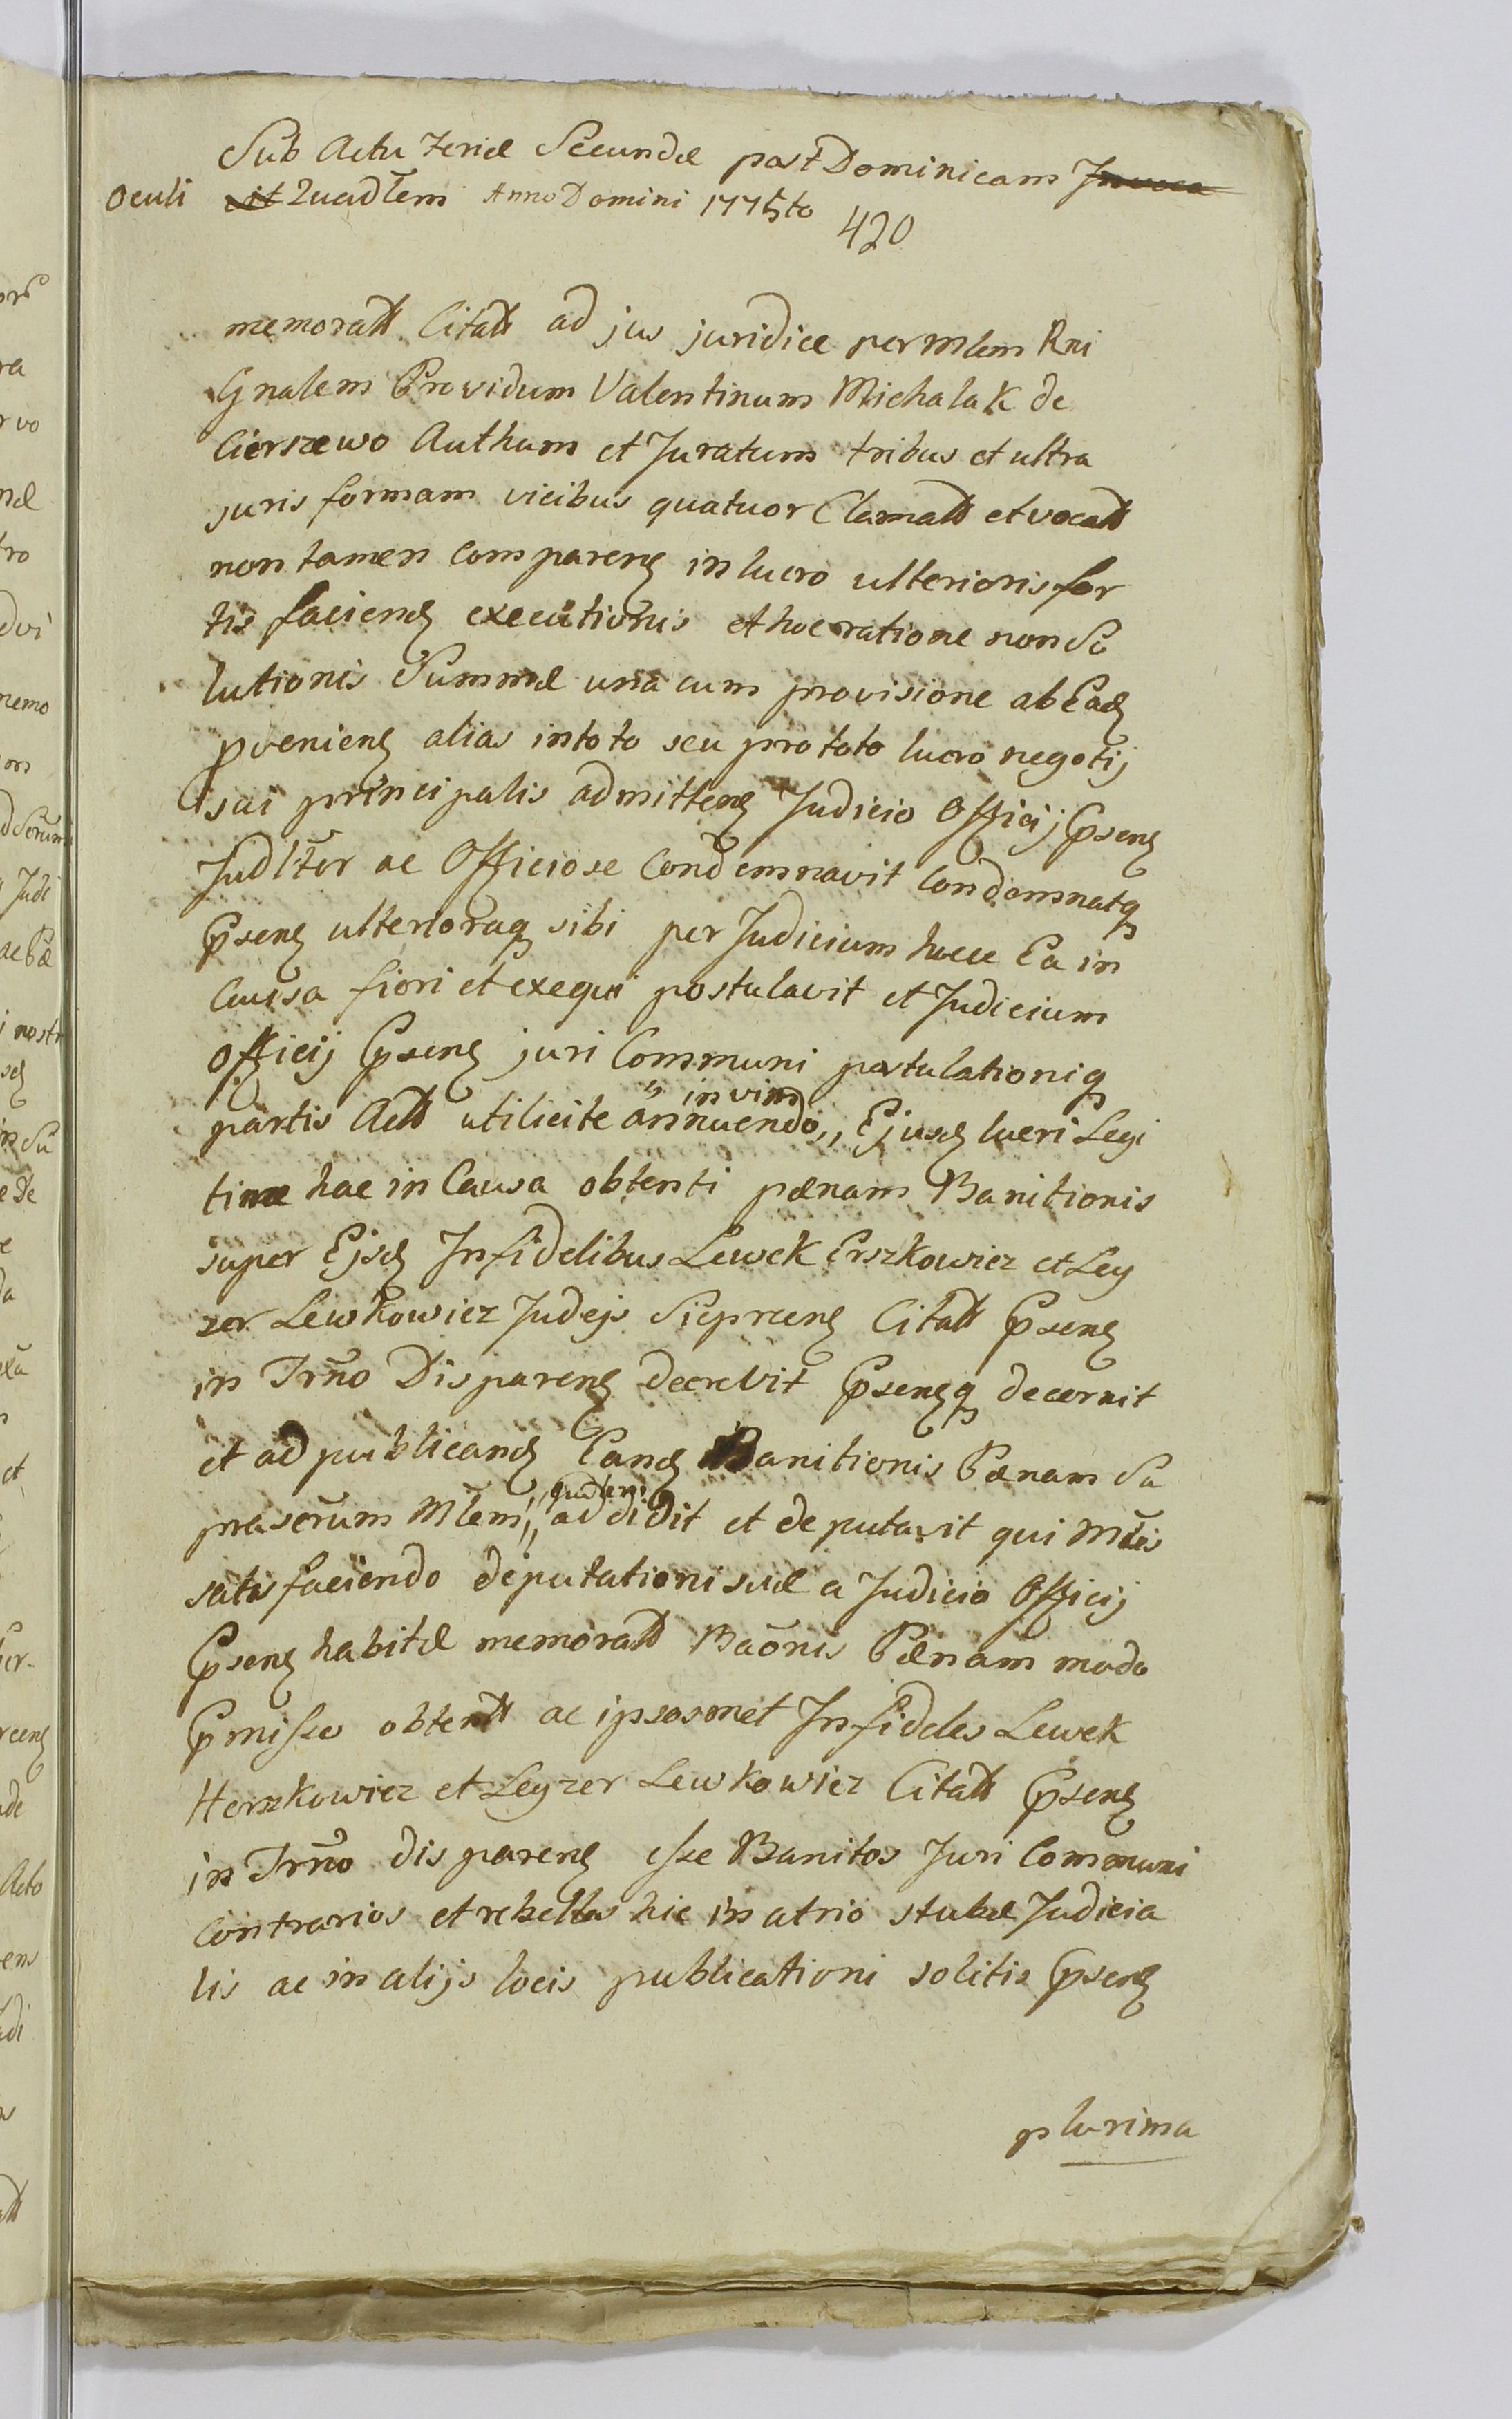 Sub Actu Feriæ Secundæ post Dominicam Invoca
Oculi vit Quadlem Anno Domini 1775to
420
memoratt Citatt ad jus juridice per Mlem Rni
Gnalem Providum Valentinum Michalak de
Cierszewo Authum et Juratum tribus et ultra
juris formam vicibus quatuor Clamatt et vocatt
non tamen comparens in lucro ulterioris for
tis faciens executionis et hoc ratione non So
lutionis Summæ una cum provisione ab Eads
pveniens alias in toto seu pro toto lucro negotij
sui principalis admittens Judicio Officij Psens
Judlter ac Officiose Condemnavit Condemnatq
Psens ulterioraq sibi per Judicium hocce Ea in
Causa fiori et exequi postulavit et Judicium
Officij Psens juri Communi postulationiq
" in vim
partis Actt utilicite annuendo,, Ejusd lucri Legi
time hac in Causa obtenti pænam Banitionis
super Ejsd Infidelibus Lewek Erszkowicz et Ley
zer Lewkowicz Judejs Sieprcens Citatt Psens
in Trno Disparens decrevit Psensq decernit
et ad publicands Eands Banitionis Pænam Su
quatenus
praserum Mlem,, addidit et deputavit qui Mtis
satisfaciendo deputationi suæ a Judicio Officij
Psens habitæ memoratt Baonis Pænam modo
Pmisso obtentt ac ipsosmet Infideles Lewek
Herszkowicz et Leyzer Lewkowicz Citatt Psens
in Trno disparens esse Banitos Juri Communi
Contrarios et rebelles hic in atrio stubæ Judicia
lis ac in alijs locis publicationi solitis Psens
plurima